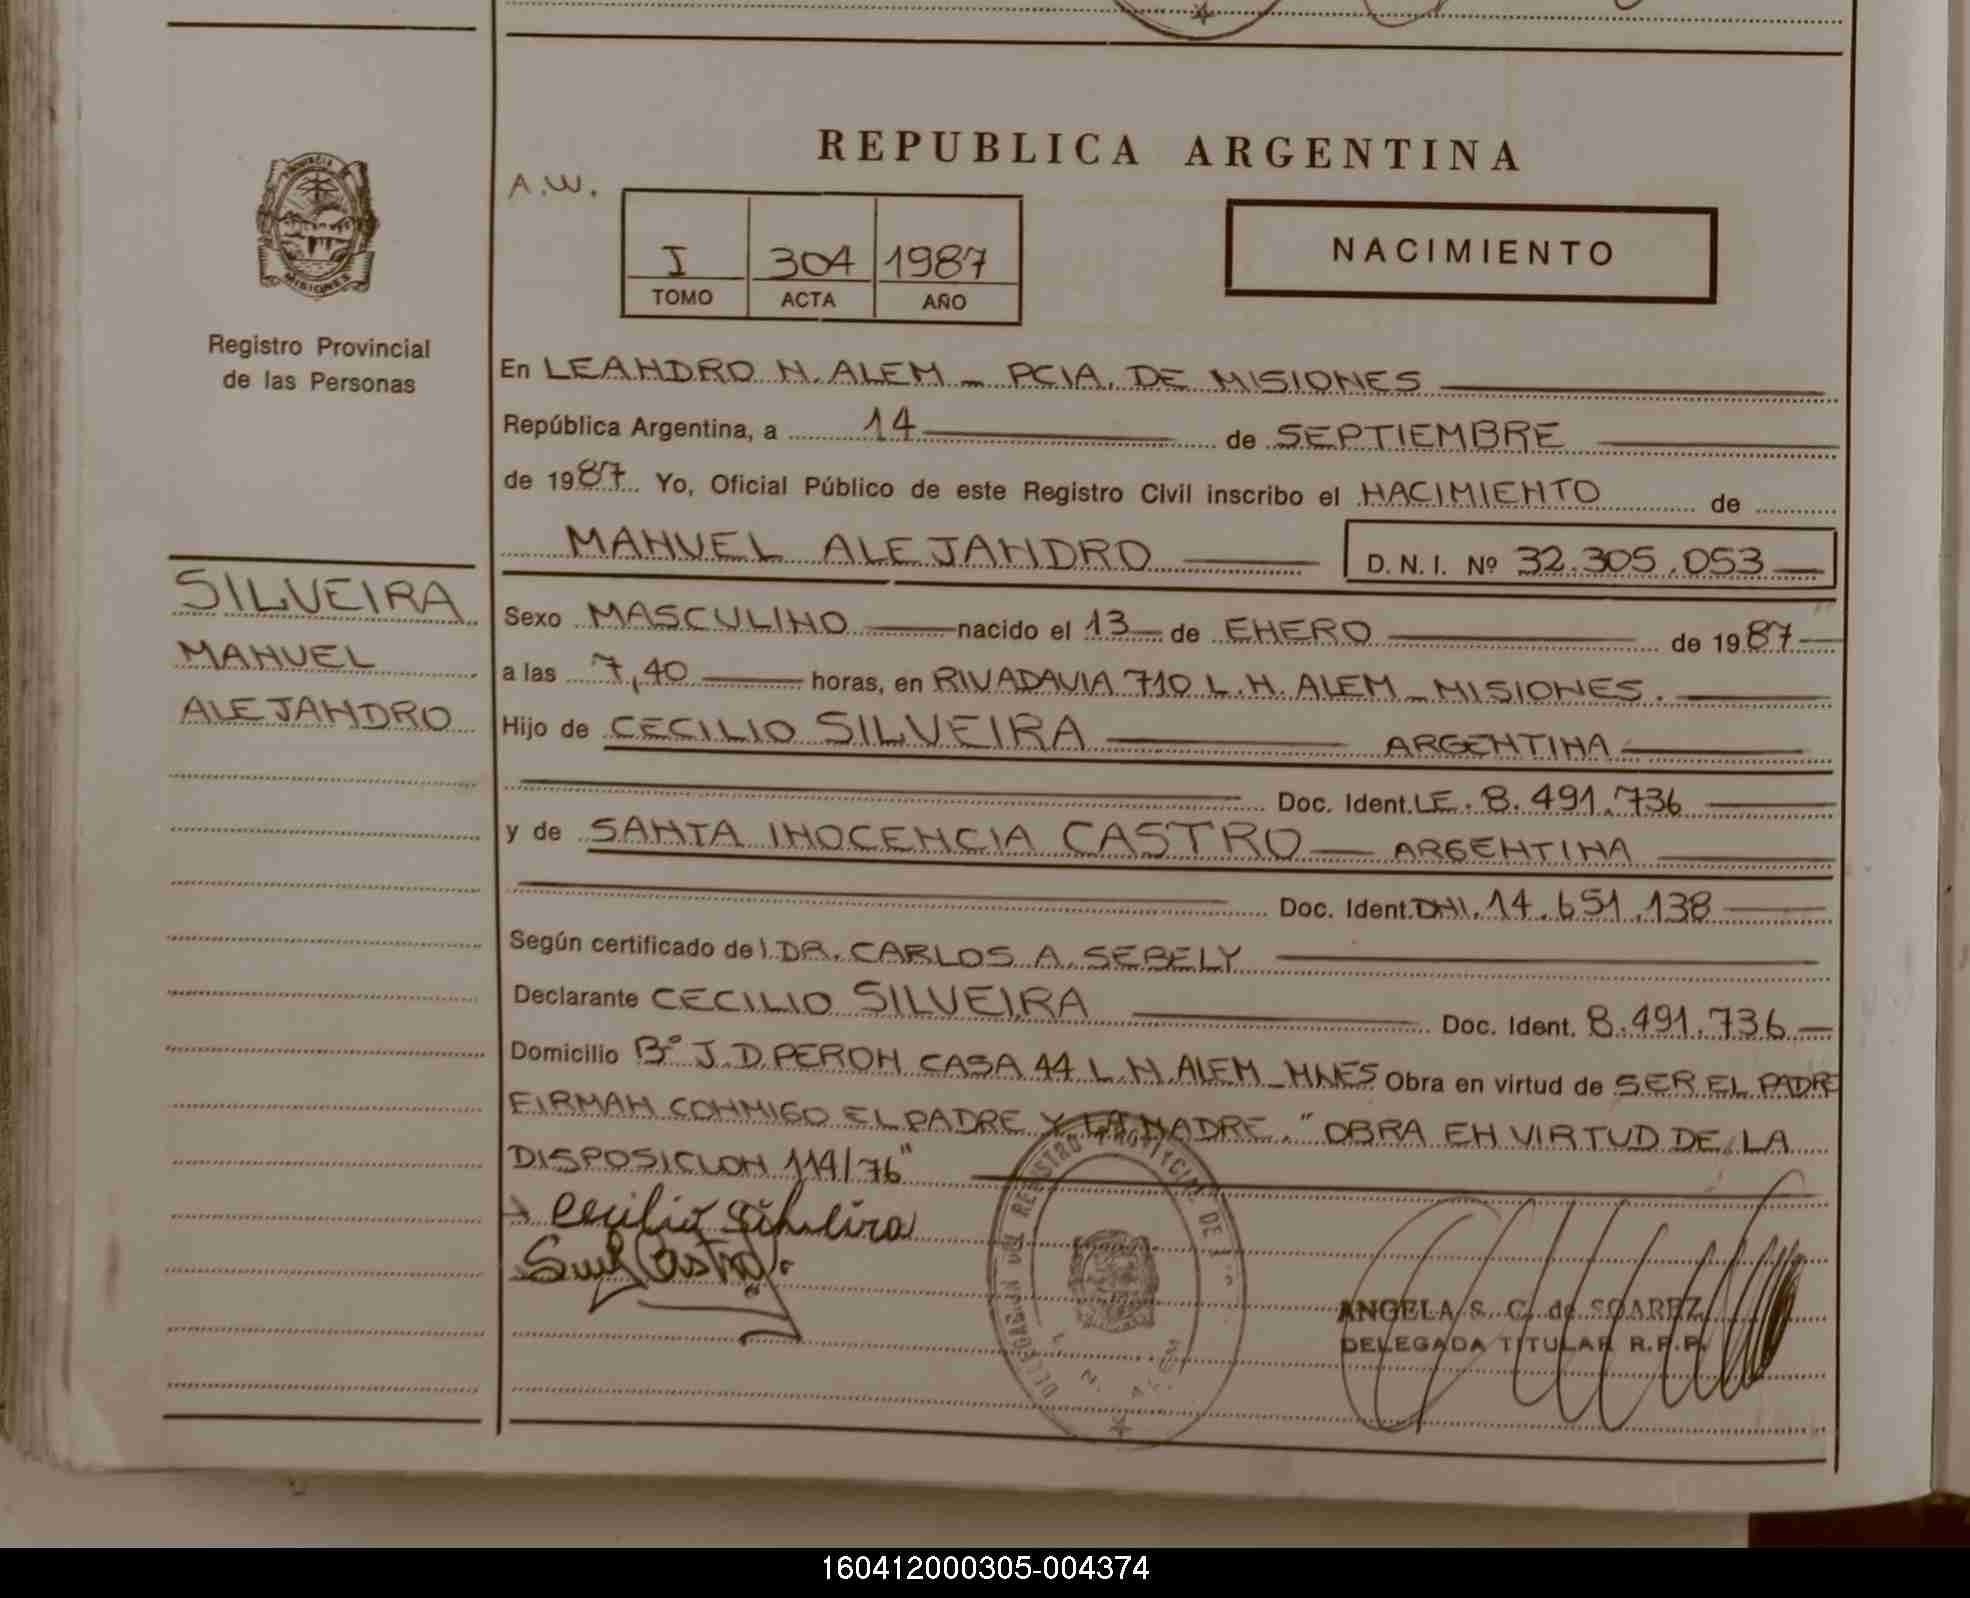 REPUBLICA ARGENTINA
A.W.
I 304 1987
TOMO ACTA AÑO
NACIMIENTO
PROVINCIA
MISIONES
Registro Provincial
de las Personas
SILVEIRA
MANUEL
ALEJANDRO
En LEANDRO N. ALEM - PCIA. DE MISIONES
República Argentina, a 14 de SEPTIEMBRE
de 1987 Yo, Oficial Público de este Registro Civil inscribo el NACIMIENTO de
MANUEL ALEJANDRO D.N.I. Nº 32.305.053
Sexo MASCULINO nacido el 13 de ENERO de 1987
a las 7,40 horas, en RIVADAVIA 710 L.N. ALEM - MISIONES.
Hijo de CECILIO SILVEIRA ARGENTINA
Doc. Ident. LE. 8.491.736
y de SANTA INOCENCIA CASTRO ARGENTINA
Doc. Ident. DNI. 14.651.138
Según certificado del DR. CARLOS A. SEBELY
Declarante CECILIO SILVEIRA Doc. Ident. 8.491.736
Domicilio Bº J.D. PERON CASA 44 L.N. ALEM - MNES Obra en virtud de SER EL PADRE
FIRMAN CONMIGO EL PADRE Y LA MADRE. "OBRA EN VIRTUD DE LA
DISPOSICION 114/76"
Cecilio Silveira
Castro
DELEGACION DEL REGISTRO PROVINCIAL DE
L. N. ALEM
ANGELA S. C. de SOAREZ
DELEGADA TITULAR R.P.P.
160412000305-004374